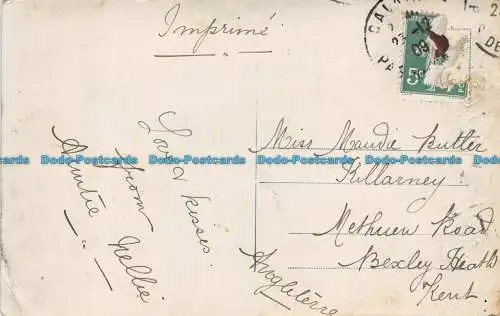 Imprimé
Love & kisses
from
Auntie Nellie
Miss Maudie Butler
Killarney
Methuen Road
Bexley Heath
Kent.
Angleterre
CALA
23-12
09
PAS
DE
2
5
Dodo-Postcards Dodo-Postcards Dodo-Postcards Dodo-Postcards Dodo-Postcards Dodo-Postcards